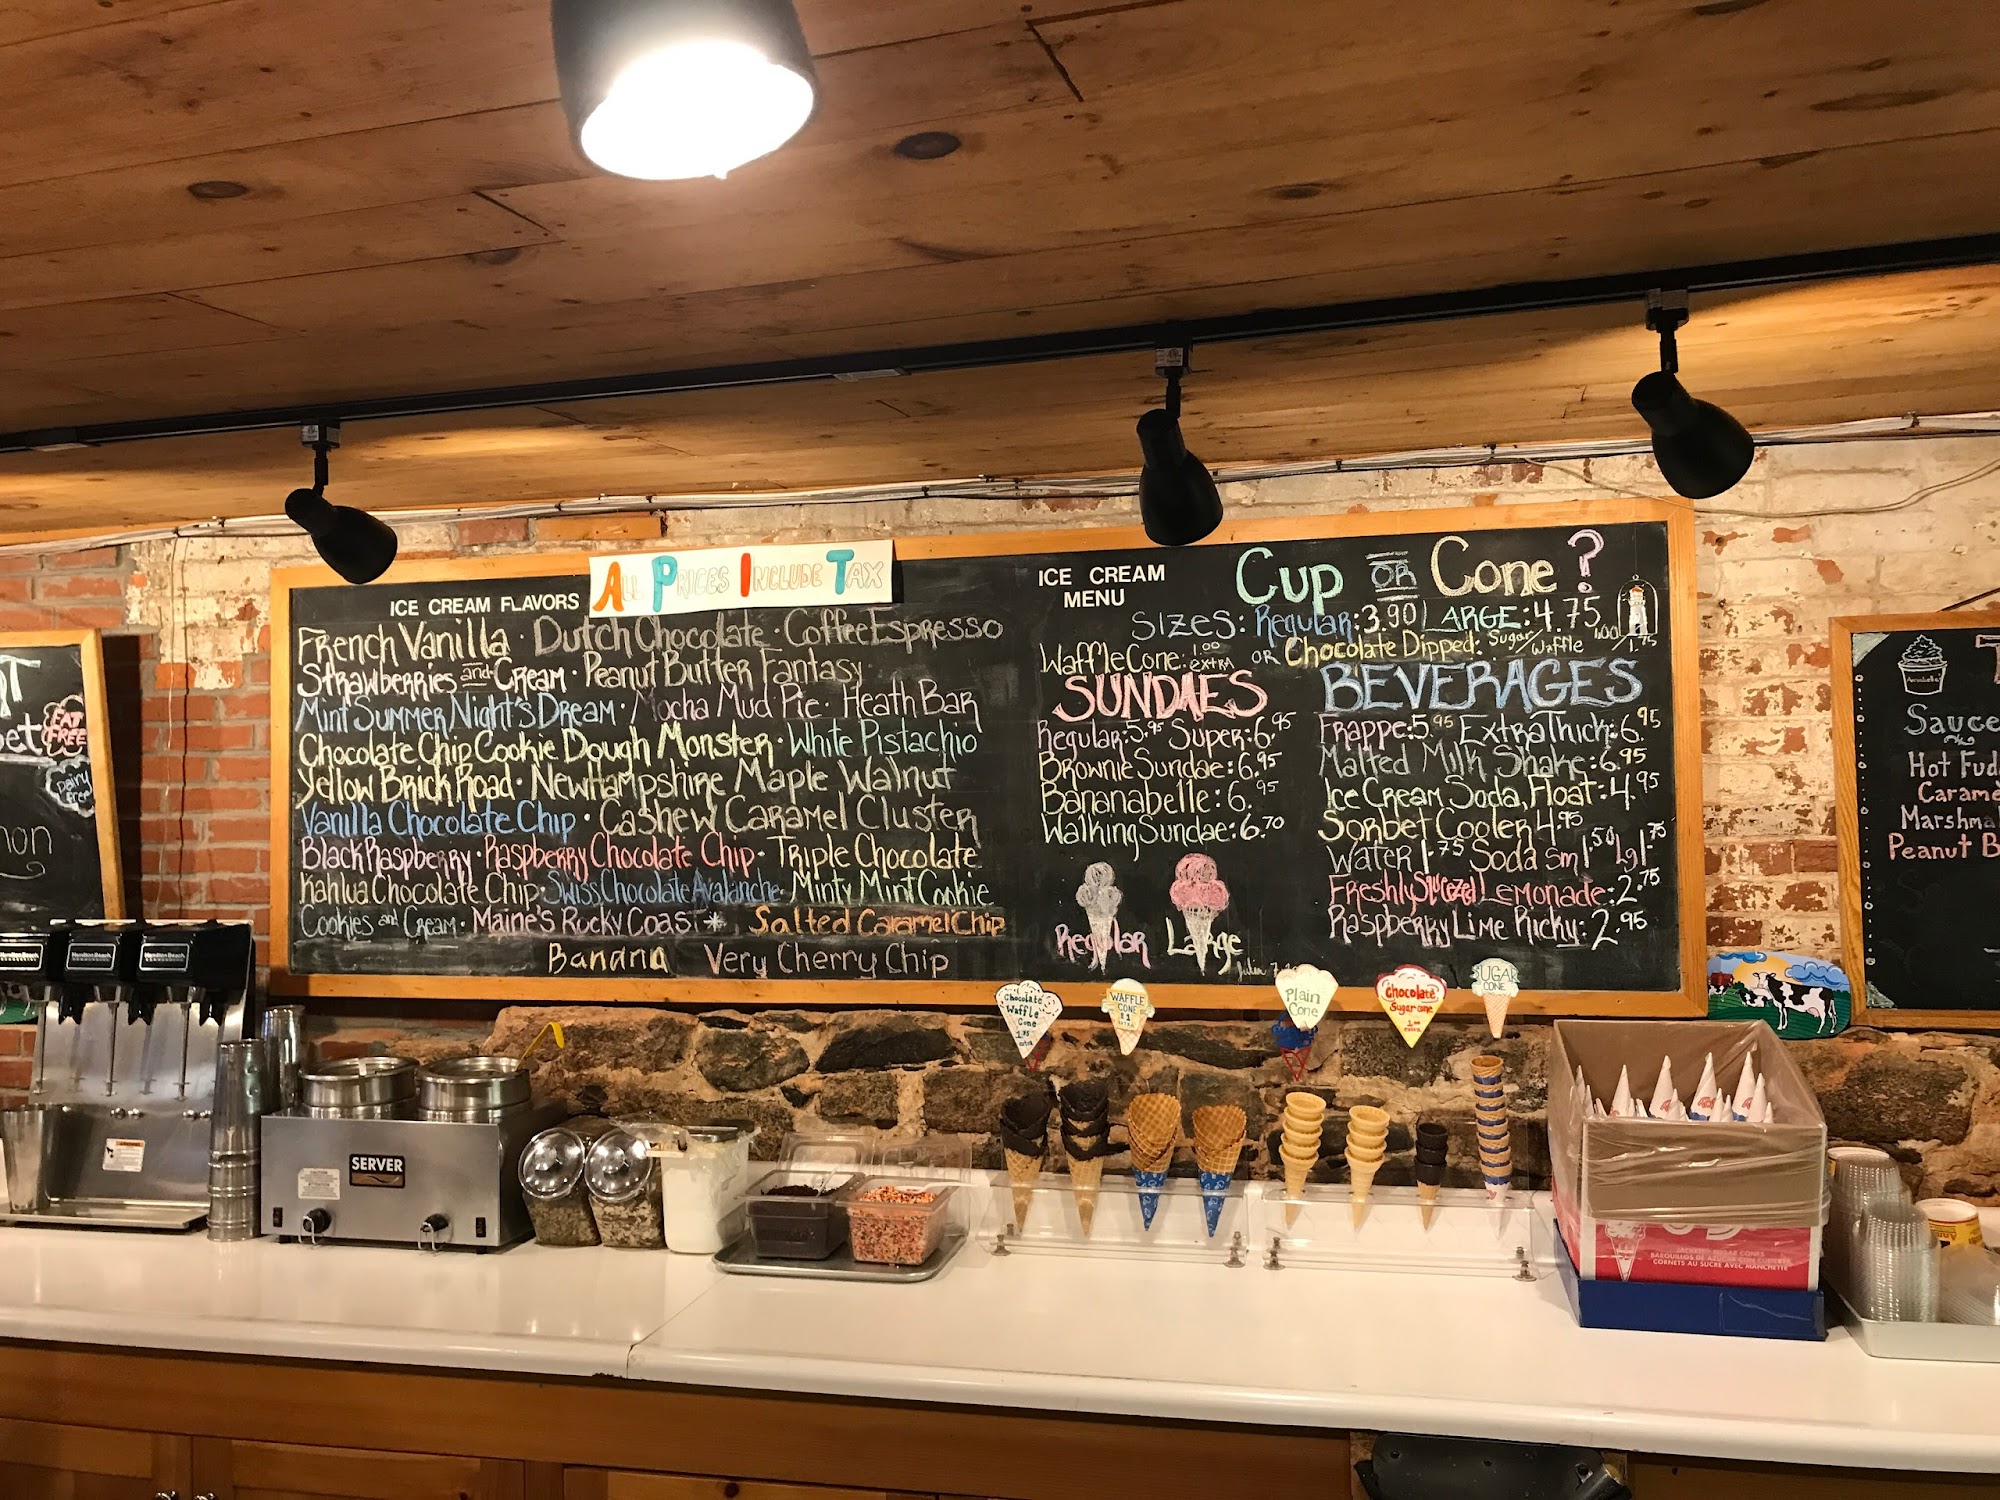 ALL PRICES INCLUDE TAX
ICE CREAM FLAVORS
French Vanilla · Dutch Chocolate · Coffee Espresso
Strawberries and Cream · Peanut Butter Fantasy
Mint Summer Night's Dream · Mocha Mud Pie · Heath Bar
Chocolate Chip Cookie Dough Monster · White Pistachio
Yellow Brick Road · New Hampshire Maple Walnut
Vanilla Chocolate Chip · Cashew Caramel Cluster
Black Raspberry · Raspberry Chocolate Chip · Triple Chocolate
Kahlua Chocolate Chip · Swiss Chocolate Avalanche · Minty Mint Cookie
Cookies and Cream · Maine's Rocky Coast * Salted Caramel Chip
Banana Very Cherry Chip
ICE CREAM MENU
Cup OR Cone?
Sizes: Regular: 3.90 Large: 4.75
Waffle Cone: 1.00 extra OR Chocolate Dipped: Sugar/Waffle 1.00/1.75
SUNDAES
Regular: 5.95 Super: 6.95
Brownie Sundae: 6.95
Bananabelle: 6.95
Walking Sundae: 6.70
Regular Large
BEVERAGES
Frappe: 5.95 Extra Thick: 6.95
Malted Milk Shake: 6.95
Ice Cream Soda, Float: 4.95
Sorbet Cooler 4.95
Water 1.75 Soda sm 1.50 Lg 1.75
Freshly Squeezed Lemonade: 2.75
Raspberry Lime Ricky: 2.95
FAT FREE
Dairy Free
Annabelle's
Sauce
Hot Fud
Marshma
Peanut B
Chocolate Waffle Cone 1.75 extra
WAFFLE CONE $1 EXTRA
Plain Cone
Chocolate Sugar cone 1.00 extra
SUGAR CONE
Hamilton Beach
Hamilton Beach
Hamilton Beach
SERVER
JACKETED SUGAR CONES
BARQUILLOS DE AZUCAR CON CUBIERTA
CORNETS AU SUCRE AVEC MANCHETTE